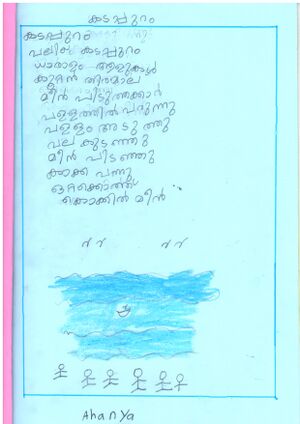 കടപ്പുറം
കടപ്പുറം
പലിയ കടപ്പുറം
ധാരാളം ആളുകൾ
കൂറ്റൻ തിരമാല
മീൻ പിടുത്തക്കാർ
പള്ളത്തിൽ പരുന്നു
പള്ളം അടുത്തു
വല കുടഞ്ഞു
മീൻ പിടഞ്ഞു
കാക്ക പന്നു
ഒറ്റക്കൊത്ത്
കൊക്കിൽ മീൻ
Ahanya